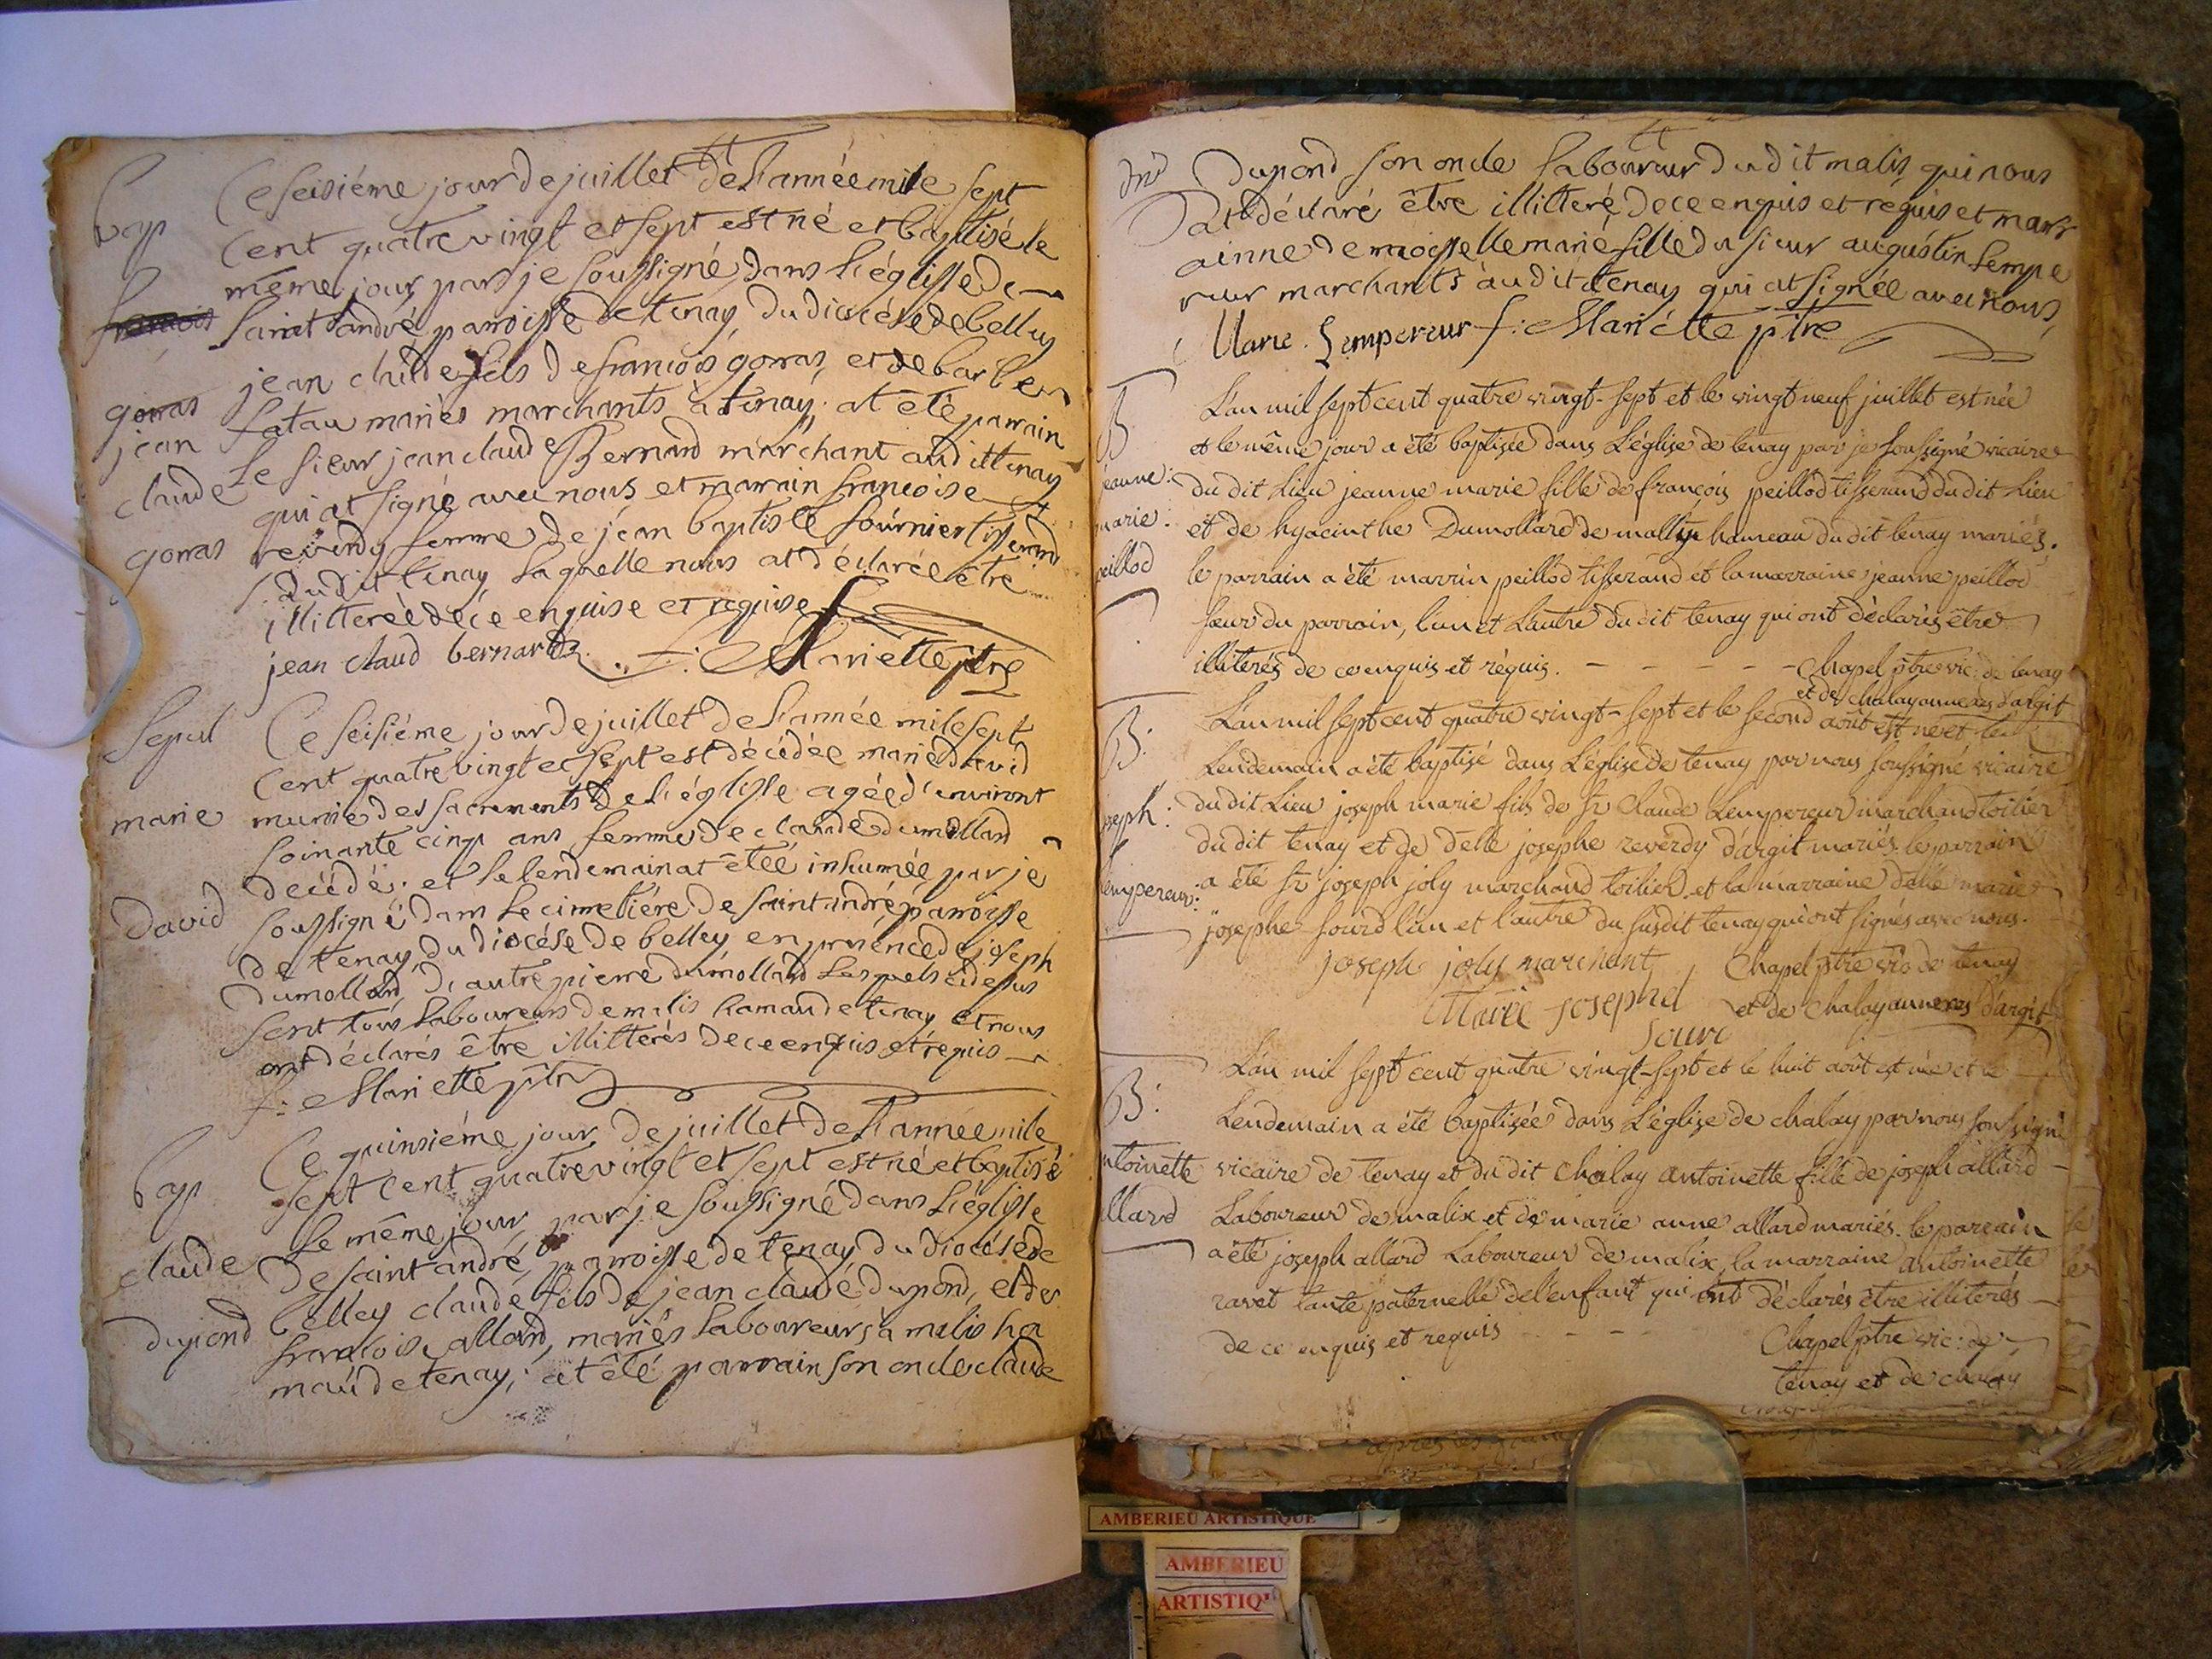 Bap
Ce seisiéme jour de juillet de l'année mile sept
cent quatre vingt et sept est né et baptisé le
même jour par je soussigné dans l'églisse de
francois
saint andré parroisse de tenay du diocése de belley
jean claude fils de francois gorras, et de barbe
gorras
latau mariés marchants à tenay. at été parrain
jean
le sieur jean claude Bernard marchant audit tenay
claude
qui at signé avec nous et marrain francoise
gorras
reverdy femme de jean baptiste fournier tisserand
dudit tenay laquelle nous at déclarée être
illiterée de ce enquise et requise
jean claud bernard f: Mariette ptre
Sepul
Ce seisiéme jour de juillet de l'année mile sept
cent quatre vingt et sept est décédée marie david
munie des sacrements de l'églisse agée d'environt
marie
soinante cinq ans femme de claude dumollard
décédé; et le lendemain at étée inhumée par je
david
soussigné dans le cimetiére de saint andré, parroisse
de tenay du diocése de belley en présence de joseph
dumollard d'autre pierre dumollard lesquels cidessus
sont tous laboureurs de malis hamaud de tenay et nous
ont déclarés être illiterés de ce enquis et requis
f: Mariette ptre
Bap
Ce quinsiéme jour de juillet de l'année mile
sept cent quatre vingt et sept est né et baptisé
le même jour par je soussigné dans l'églisse
claude
de saint andré, parroisse de tenay du diocése de
belley claude fils de jean claude dupond, et de
dupond
francoise allard, mariés laboureurs à malis ha
maud de tenay; at été parrain son oncle claude
dupond son oncle laboureur dudit malis qui nous
at déclaré être illiteré, de ce enquis et requis et marr
ainne demoisselle marie fille du sieur augustin lempe
reur marchants audit tenay qui at signée avec nous
Marie. Lempereur f: Mariette ptre
B
L'an mil sept cent quatre vingt-sept et le vingt neuf juillet est née
et le même jour a été baptisée dans L'église de tenay par je soussigné vicaire
jeanne:
du dit Lieu jeanne marie fille de françois peillod tisserand du dit Lieu
marie:
et de hyacinthe Dumollard de mallix hameau du dit tenay mariés.
peillod
le parrain a été marrin peillod tisserand et la marraine jeanne peillod
sœur du parrain, l'un et L'autre du dit tenay qui ont déclarés être
illiterés de ce enquis et réquis. - - - - - Chapel ptre vic: de tenay
et de chalay annexes d'argit
B:
L'an mil sept cent quatre vingt-sept et le second août est né et le
Lendemain a été baptisé dans L'église de tenay par nous soussigné vicaire
joseph:
du dit Lieu joseph marie fils de Sr Claude Lempereur marchand toilier
du dit tenay et de delle josephe reverdy d'argit mariés. le parrain
lempereur:
a été Sr joseph joly marchand toilier et la marraine delle marie
josephe sourd l'un et l'autre du susdit tenay qui ont signés avec nous.
joseph joly marchent
Chapel ptre vic de tenay
Marie Josephe
et de Chalay annexes d'argit
L'an mil sept cent quatre vingt-sept et le huit août est née et le
B:
Lendemain a été baptisée dans L'église de chalay par nous soussigné
ntoinette
vicaire de tenay et du dit Chalay antoinette fille de joseph allard
llard
Laboureur de malix et de marie anne allard mariés. le parrain
a été joseph allard Laboureur de malix, la marraine antoinette
ravet tante paternelle de l'enfant qui ont déclarés être illiterés
de ce enquis et requis - - -
Chapel ptre vic: de
tenay et de chalay
AMBERIEU ARTISTIQUE
AMBERIEU
ARTISTIQU